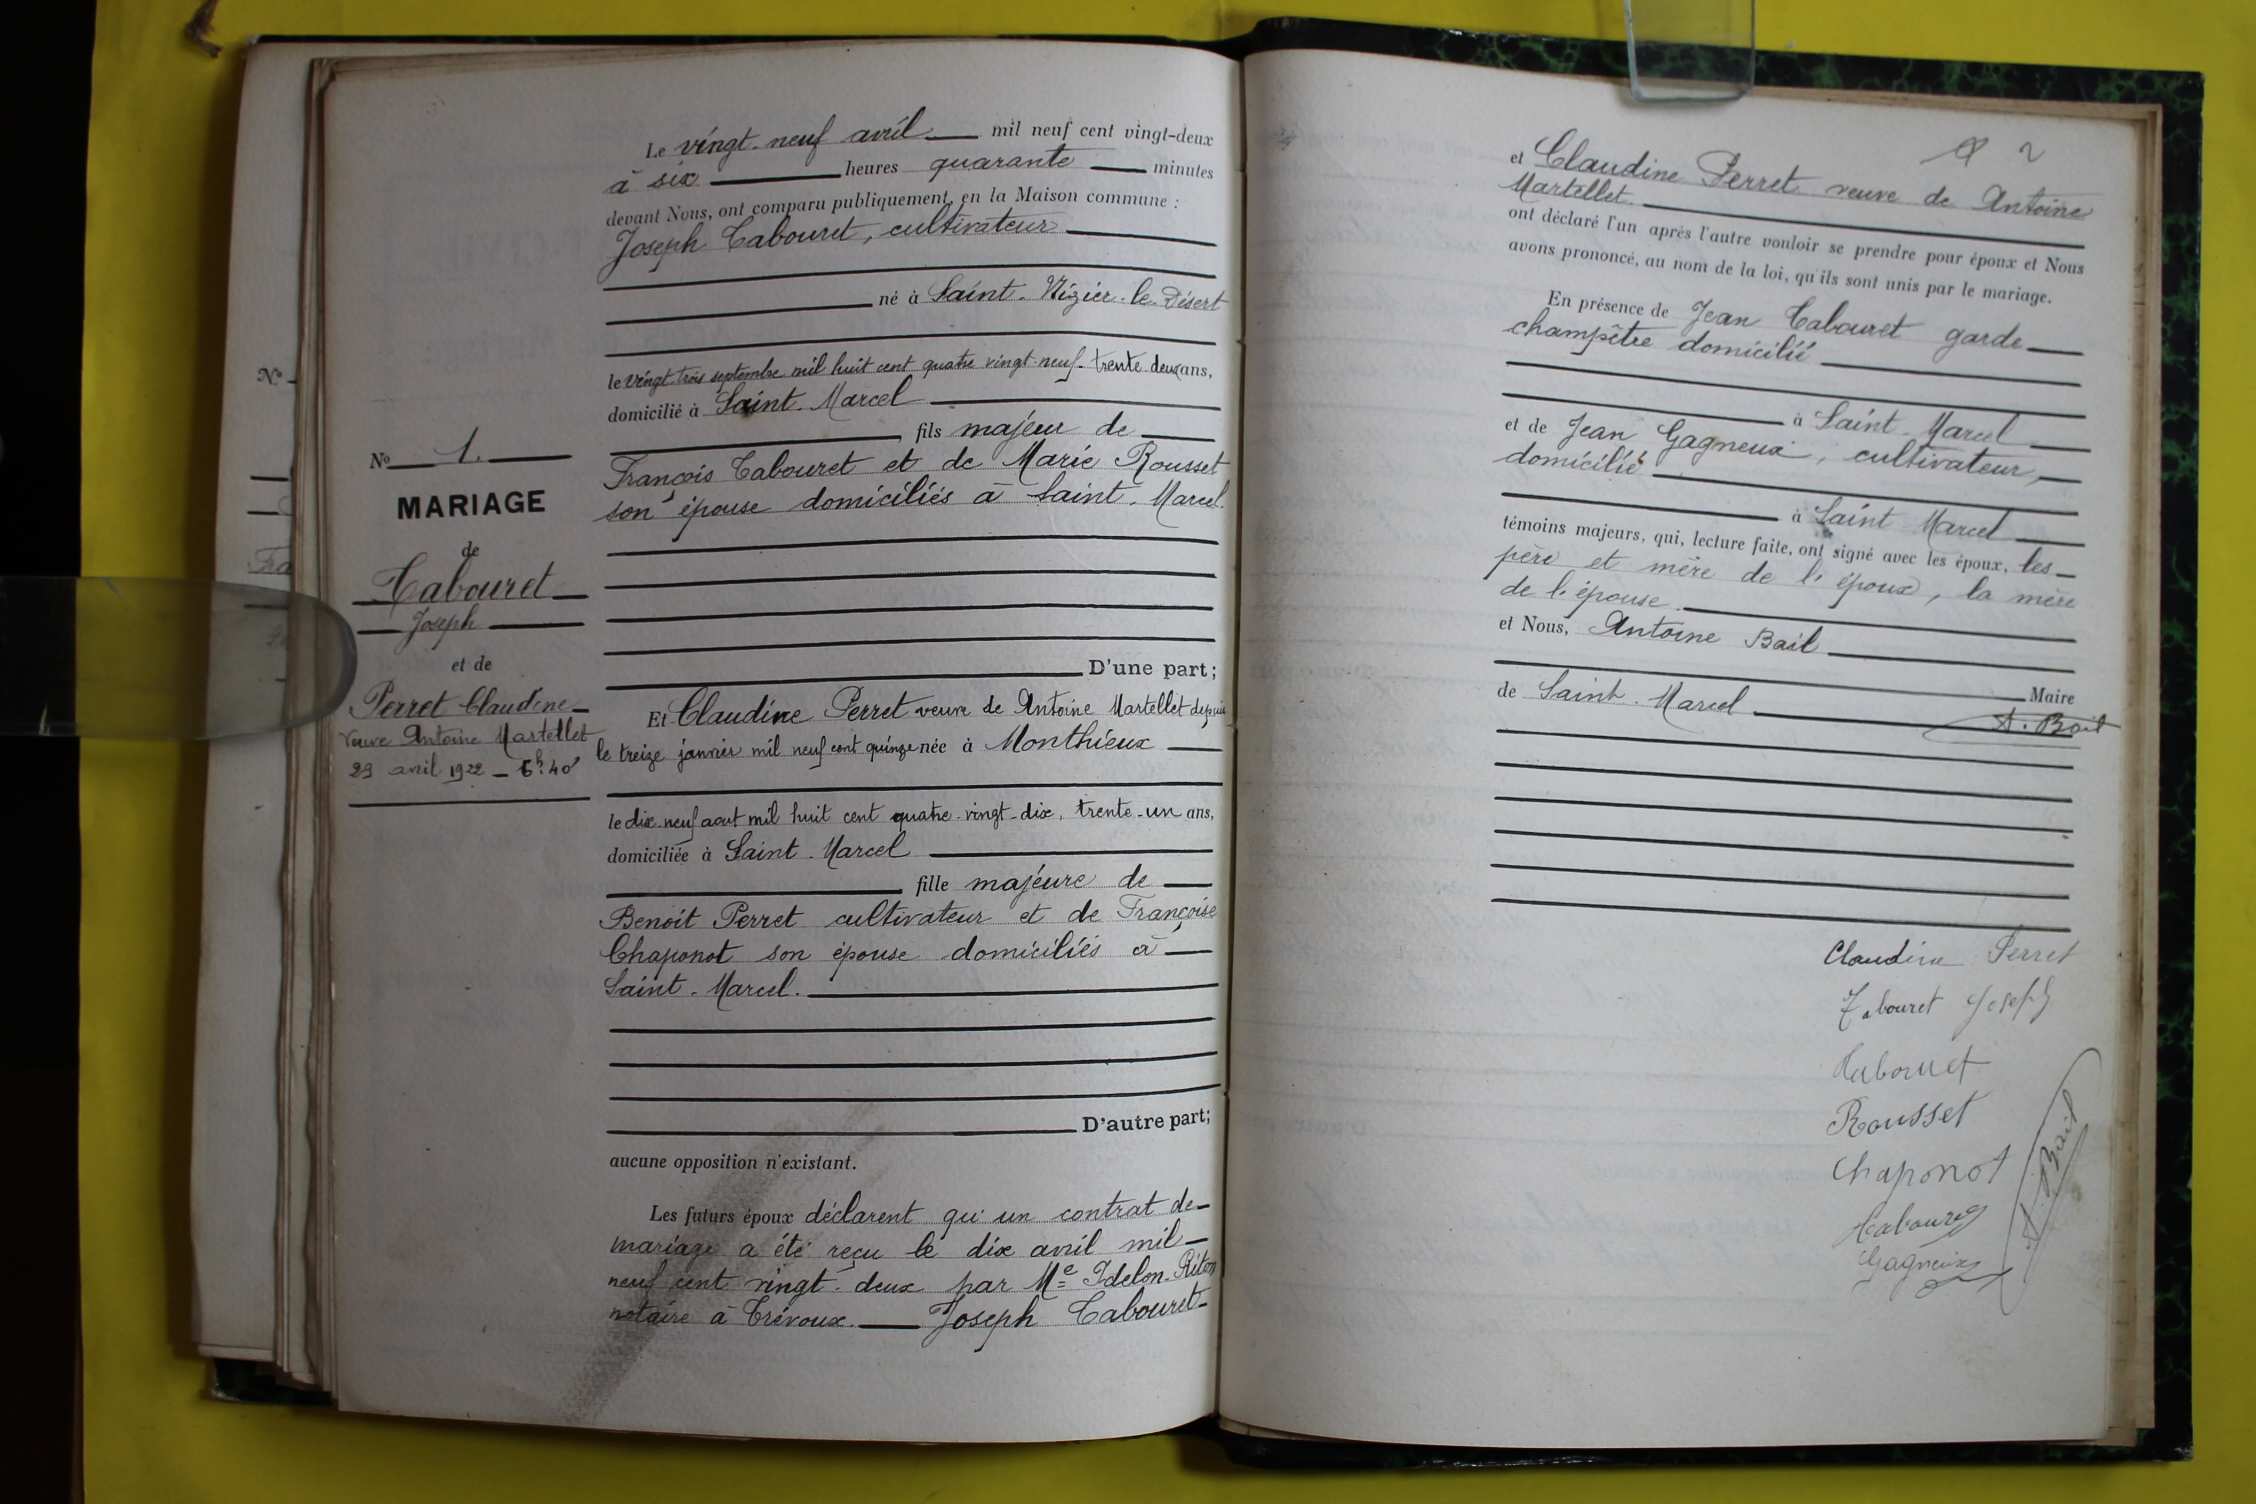 Nº
Fra
Nº 1.
MARIAGE
de
Tabouret
Joseph
et de
Perret Claudine
veuve Antoine Martellet
29 avril 1922 - 6h. 40'
Le vingt-neuf avril mil neuf cent vingt-deux
à six heures quarante minutes
devant Nous, ont comparu publiquement, en la Maison commune :
Joseph Tabouret, cultivateur
né à Saint-Nizier-le-Désert
le vingt trois septembre mil huit cent quatre vingt-neuf - trente deux ans,
domicilié à Saint-Marcel
fils majeur de
François Tabouret et de Marie Rousset
son épouse domiciliés à Saint-Marcel.
D'une part;
Et Claudine Perret veuve de Antoine Martellet depuis
le treize janvier mil neuf cent quinze née à Monthieux
le dix-neuf aout mil huit cent quatre-vingt-dix, trente-un ans,
domiciliée à Saint-Marcel
fille majeure de
Benoit Perret cultivateur et de Françoise
Chaponot son épouse domiciliés à
Saint-Marcel.
D'autre part;
aucune opposition n'existant.
Les futurs époux déclarent qu'un contrat de
mariage a été reçu le dix avril mil
neuf cent vingt-deux par Me Idelon-Riton
notaire à Trévoux. Joseph Tabouret
2
et Claudine Perret veuve de Antoine
Martellet.
ont déclaré l'un après l'autre vouloir se prendre pour époux et Nous
avons prononcé, au nom de la loi, qu'ils sont unis par le mariage.
En présence de Jean Tabouret garde
champêtre domicilié
à Saint-Marcel
et de Jean Gagneux, cultivateur,
domicilié
à Saint Marcel
témoins majeurs, qui, lecture faite, ont signé avec les époux, les
père et mère de l'époux, la mère
de l'épouse.
et Nous, Antoine Bail
Maire
de Saint-Marcel
A. Bail
Claudine Perret
Tabouret Joseph
Tabouret
Rousset
Chaponot
Tabouret
Gagneux
A. Bail